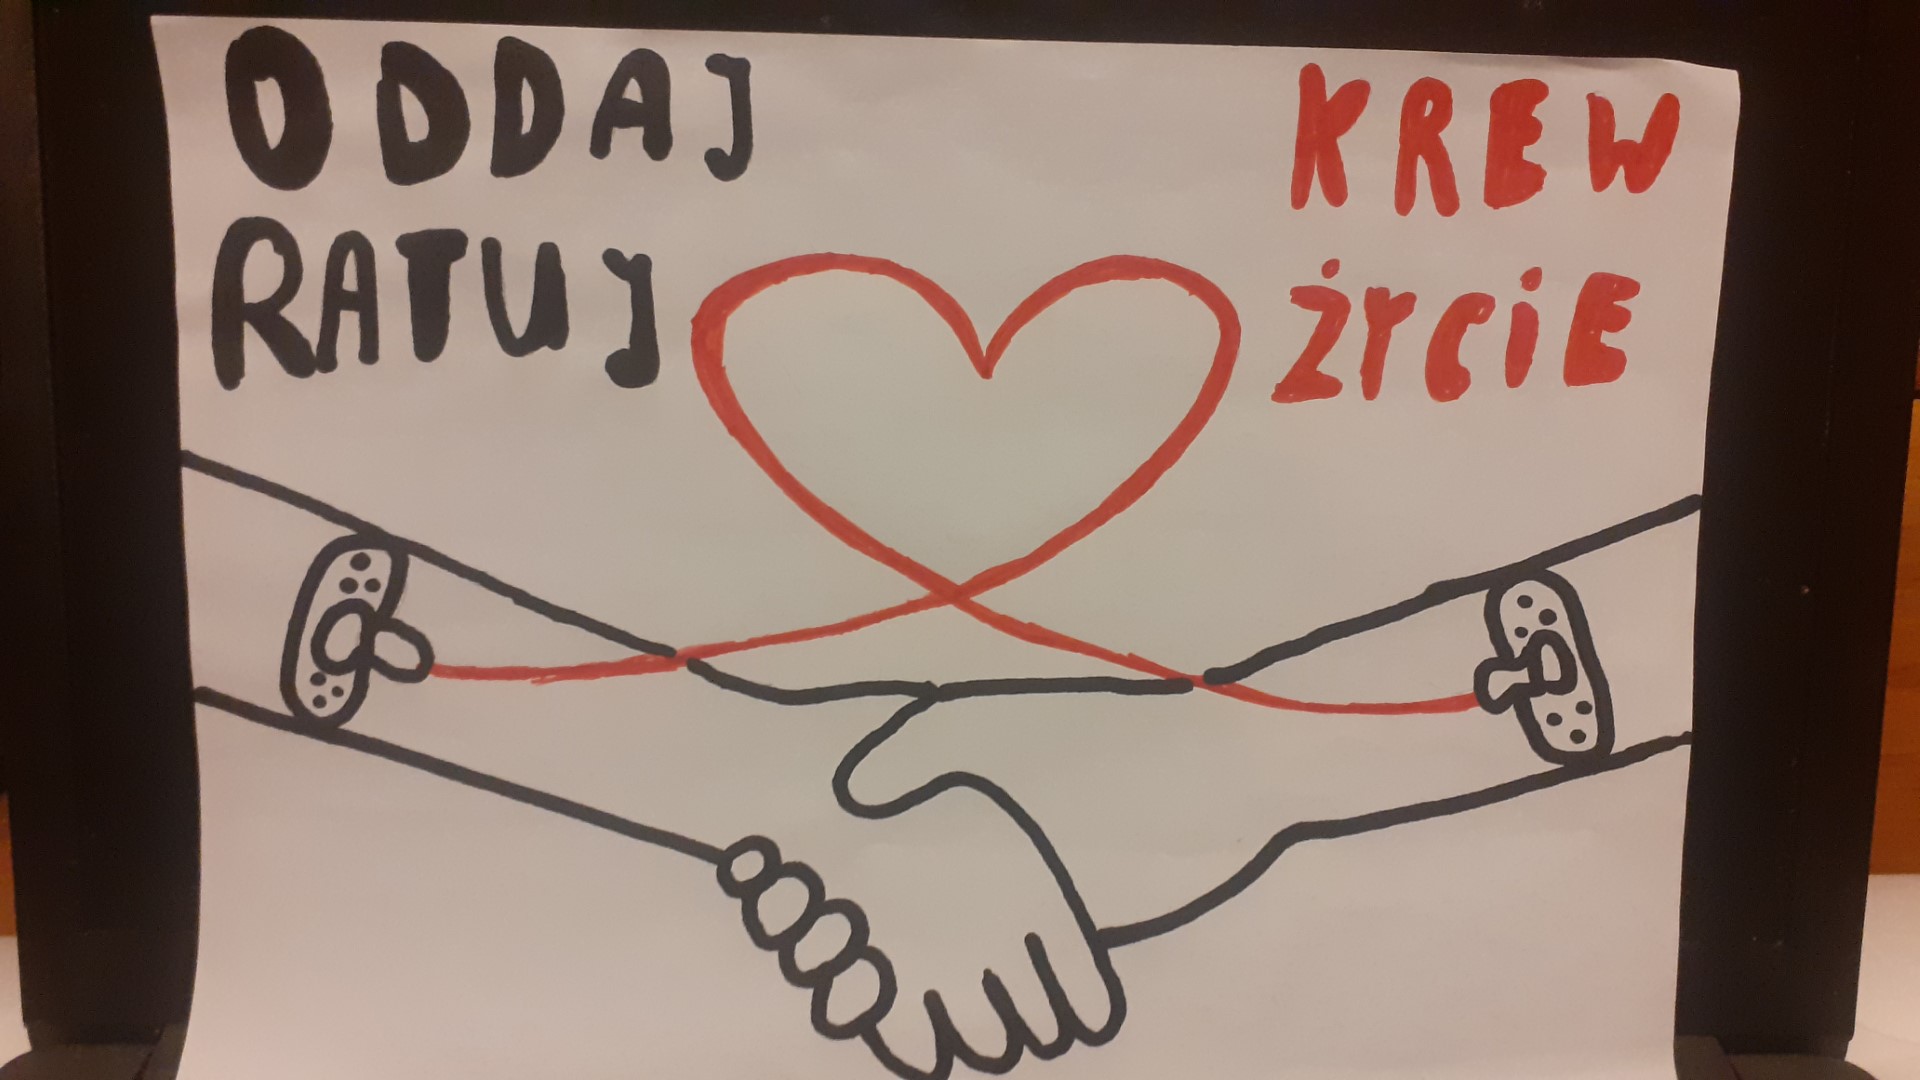 ODDAJ KREW
RATUJ ŻYCiE